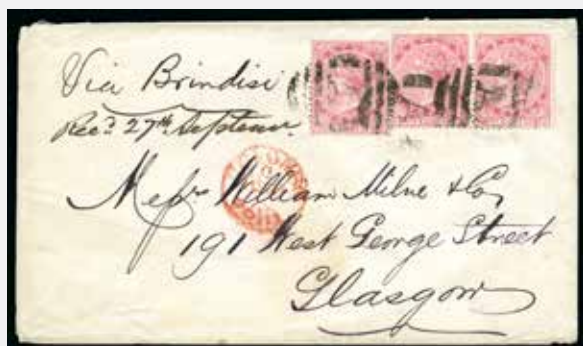 Via Brindisi
Recd 27th Septemr
Messrs William Milne & Co,
191 West George Street
Glasgow